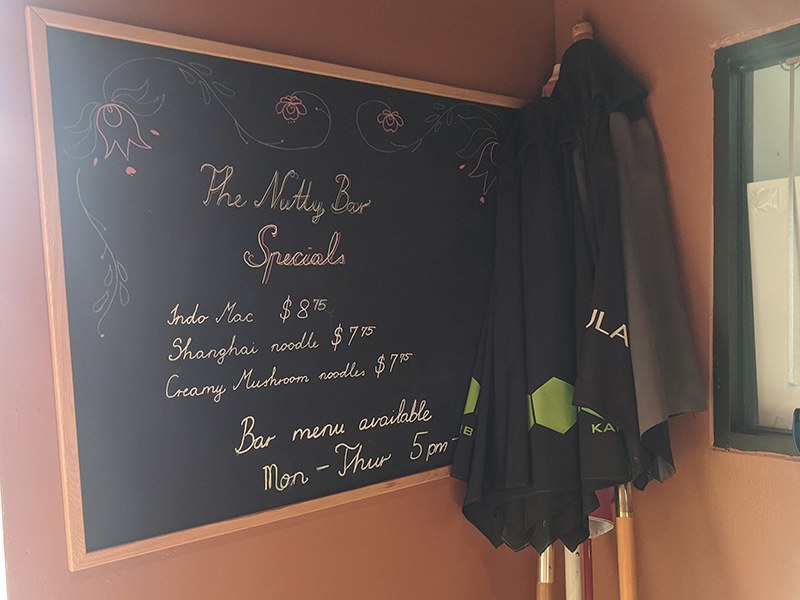 The Nutty Bar
Specials
Indo Mac $8 75
Shanghai noodle $7 75
Creamy Mushroom noodles $7 75
Bar menu available
Mon - Thur 5pm -
ULA
KA